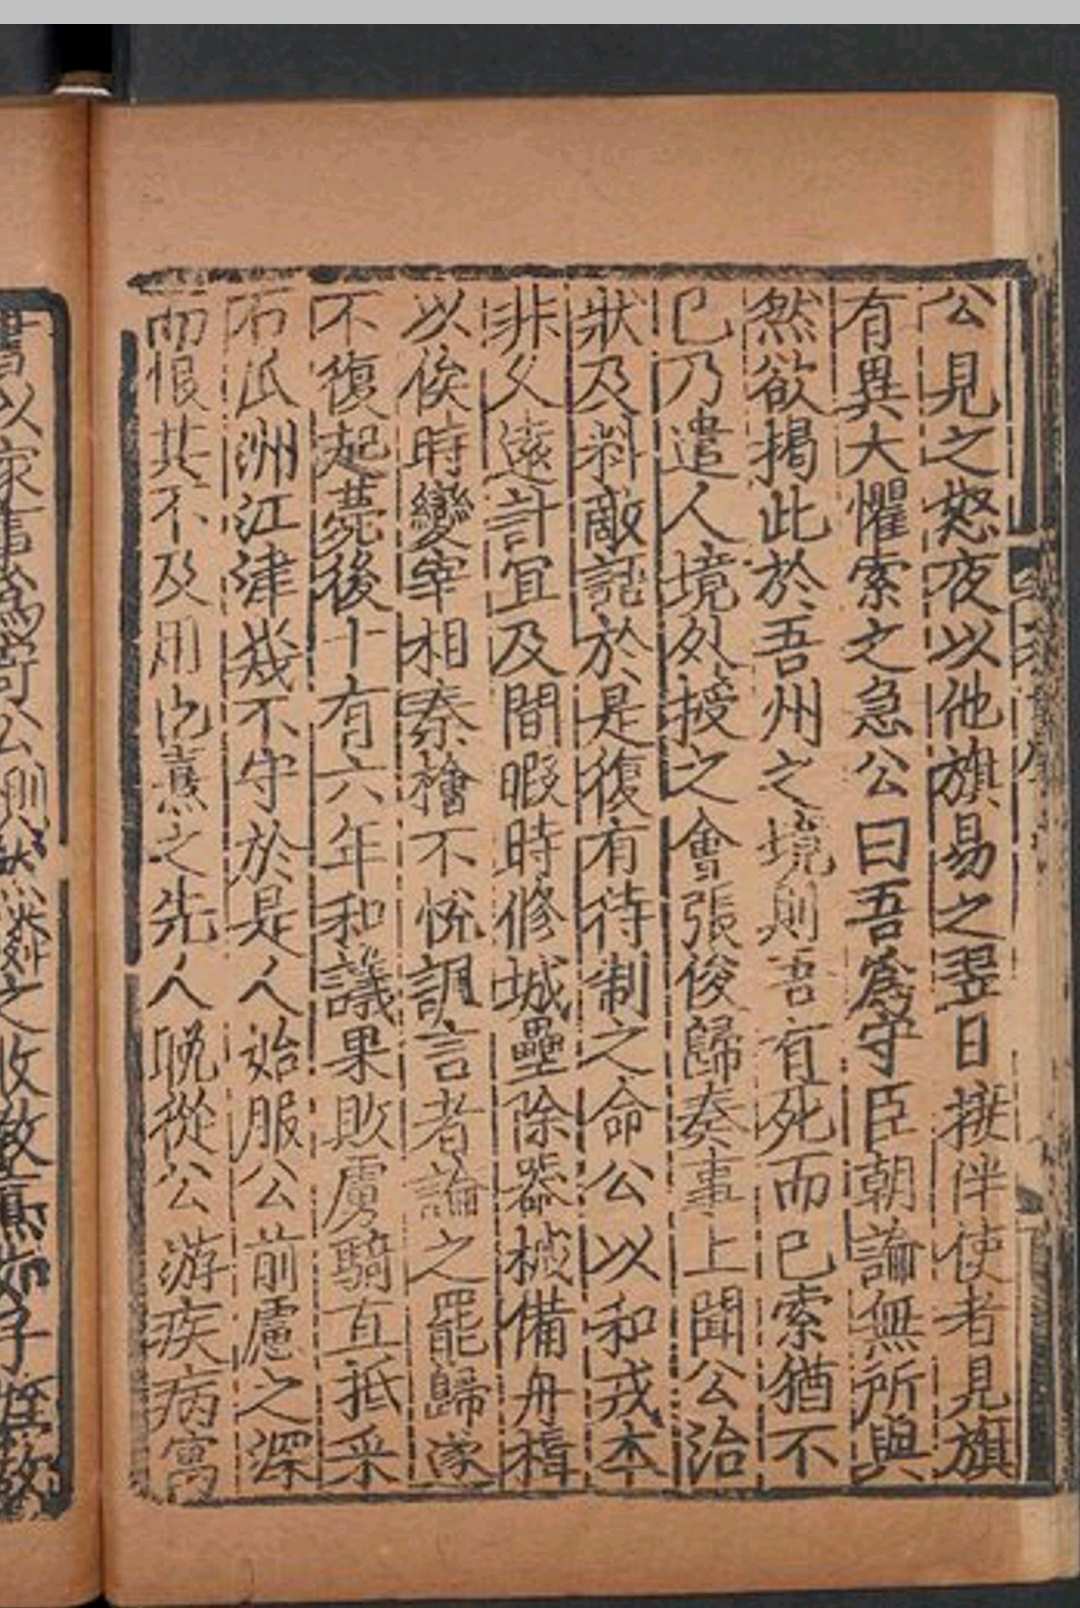 公見之怒夜以他旗易之翌日接伴使者見旗
有異大懼索之急公曰吾為守臣朝論無所與
然欲揭此於吾州之境則吾有死而已索猶不
已乃遣人境外授之會張俊歸奏事上聞公治
狀及料敵語於是復有待制之命公以和戎本
非久遠計宜及間暇時修城壘除器械備舟檝
以俟時變宰相秦檜不悅諷言者論之罷歸遂
不復起薨後十有六年和議果敗虜騎直抵采
石瓜洲江津幾不守於是人人始服公前慮之深
而恨其不及用也熹之先人晚從公游疾病寓
書以家事為寄公惻然憐之收教熹如子姪故